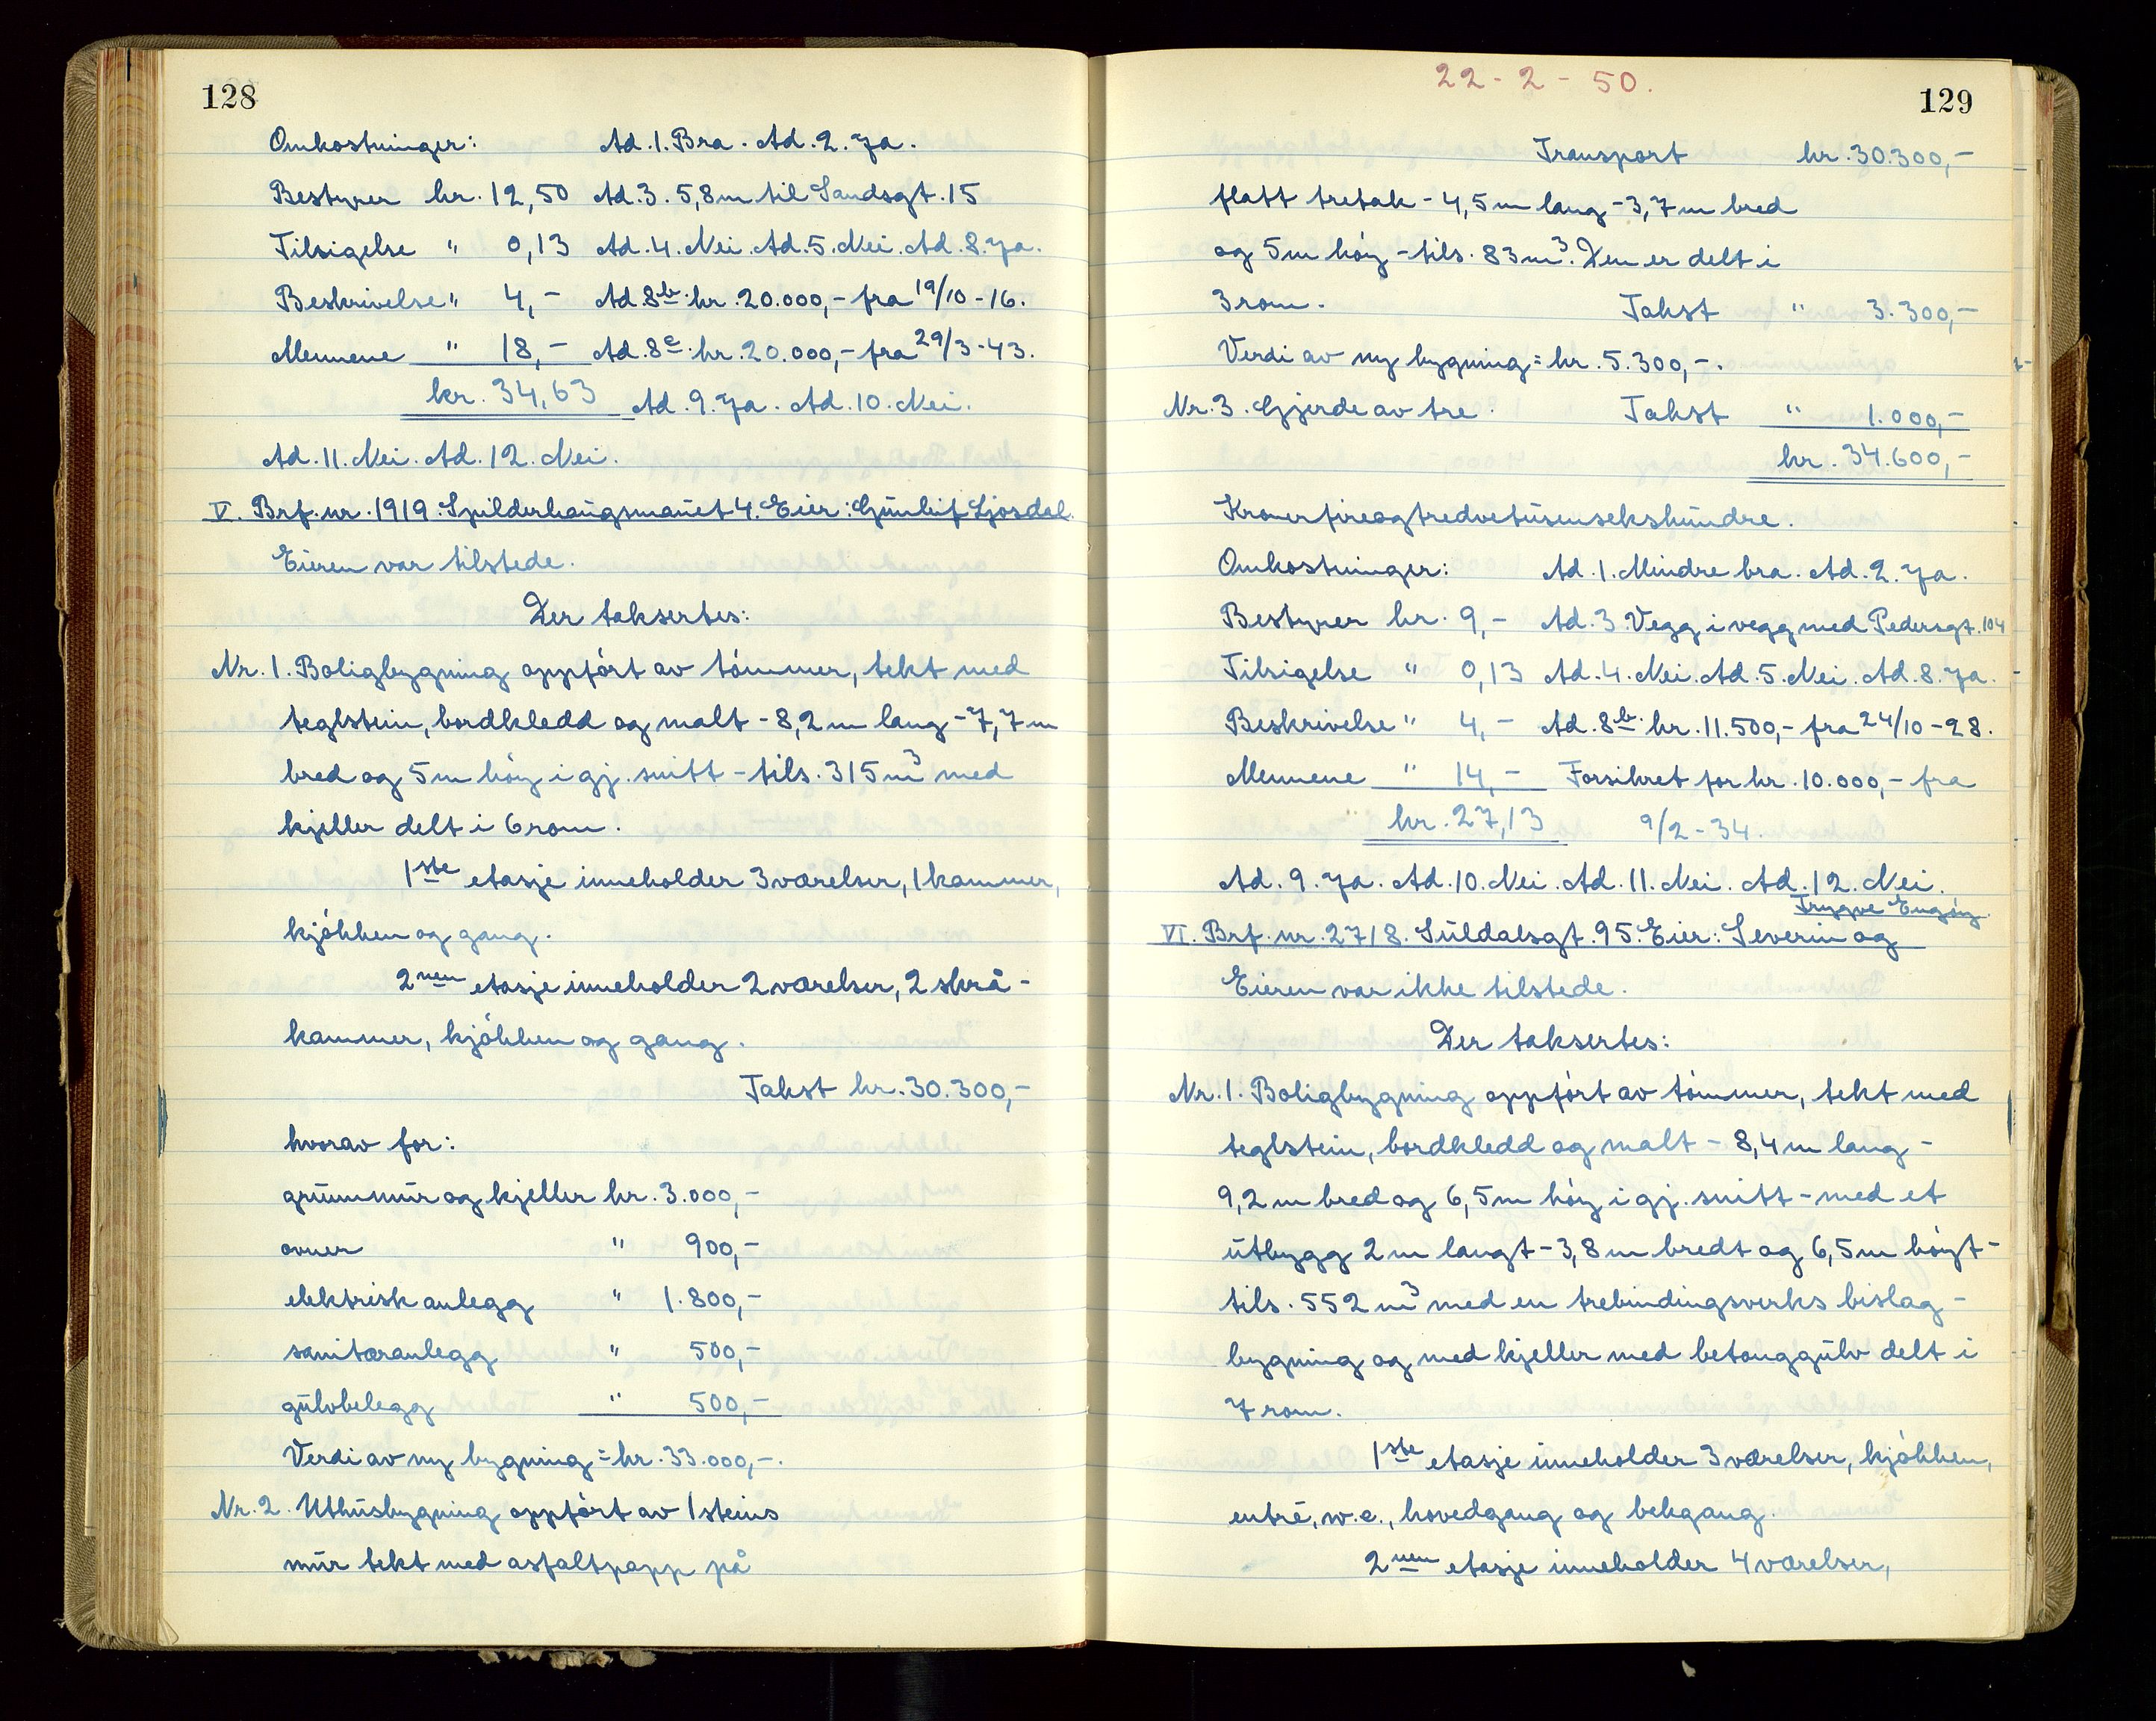 128
Omkostninger: Ad.1.Bra. Ad.2.Ja.
Bestyrer kr. 12,50 Ad.3. 5,8m til Sandsgt.15
Tilsigelse " 0,13 Ad.4.Nei.Ad.5.Nei.Ad.8.Ja.
Beskrivelse " 4,- Ad 8b. kr.20.000,- fra 19/10-16.
Mennene " 18,- Ad.8c. kr.20.000,- fra 29/3-43.
kr. 34,63 Ad.9.Ja. Ad.10.Nei.
Ad.11.Nei. Ad.12.Nei.
V. Brf.nr.1919. Spilderhaugsmauet 4. Eier: Gunleif Ljosdal.
Eieren var tilstede.
Der taksertes:
Nr.1. Boligbygning oppført av tømmer, tekt med
teglstein, bordkledd og malt - 8,2 m lang - 7,7 m
bred og 5 m høy i gj.snitt - tils. 315 m³ med
kjeller delt i 6 rom.
1ste etasje inneholder 3 værelser, 1 kammer,
kjøkken og gang.
2nen etasje inneholder 2 værelser, 2 skrå-
kammer, kjøkken og gang.
Takst kr. 30.300,-
hvorav for:
grunnmur og kjeller kr. 3.000,-
ovner " 900,-
elektrisk anlegg " 1.800,-
sanitæranlegg " 500,-
gulvbelegg " 500,-
Verdi av ny bygning = kr. 33.000,-.
Nr.2. Uthusbygning oppført av 1 steins
mur tekt med asfaltpapp på
22-2-50.
129
Transport kr. 30.300,-
flatt tretak - 4,5 m lang - 3,7 m bred
og 5 m høy - tils. 83 m³. Den er delt i
3 rom. Takst " 3.300,-
Verdi av ny bygning = kr. 5.300,-.
Nr.3. Gjerde av tre. Takst " 1.000,-
kr. 34.600,-
Kronerfireogtredvetusensekshundre.
Omkostninger: Ad.1. Mindre bra. Ad.2. Ja.
Bestyrer kr. 9,- Ad.3. Vegg i vegg med Pedersgt.104
Tilsigelse " 0,13 Ad.4.Nei.Ad.5.Nei. Ad.8.Ja.
Beskrivelse " 4,- Ad.8b. kr.11.500,- fra 24/10-28.
Mennene " 14,- Forsikret for kr.10.000,- fra
kr. 27,13 9/2-34.
Ad.9.Ja. Ad.10.Nei. Ad.11.Nei. Ad.12.Nei.
Trygve Engøy.
VI. Brf.nr.2718. Suldalsgt.95. Eier: Severin og
Eieren var ikke tilstede.
Der taksertes:
Nr.1. Boligbygning oppført av tømmer, tekt med
teglstein, bordkledd og malt - 8,4 m lang -
9,2 m bred og 6,5 m høy i gj.snitt - med et
utbygg 2 m langt - 3,8 m bredt og 6,5 m høyt -
tils. 552 m³ med en trebindingsverks bislag-
bygning og med kjeller med betonggulv delt i
7 rom.
1ste etasje inneholder 3 værelser, kjøkken,
entré, w.c., hovedgang og bekgang.
2nen etasje inneholder 4 værelser,